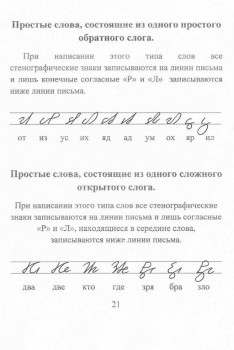 Простые слова, состоящие из одного простого
обратного слога.
При написании этого типа слов все
стенографические знаки записываются на линии письма
и лишь конечные согласные «Р» и «Л» записываются
ниже линии письма.
от из ус их яд ад ум ох яр ил
Простые слова, состоящие из одного сложного
открытого слога.
При написании этого типа слов все стенографические
знаки записываются на линии письма и лишь согласные
«Р» и «Л», находящиеся в середине слова,
записываются ниже линии письма.
два две кто где зря бра зло
21